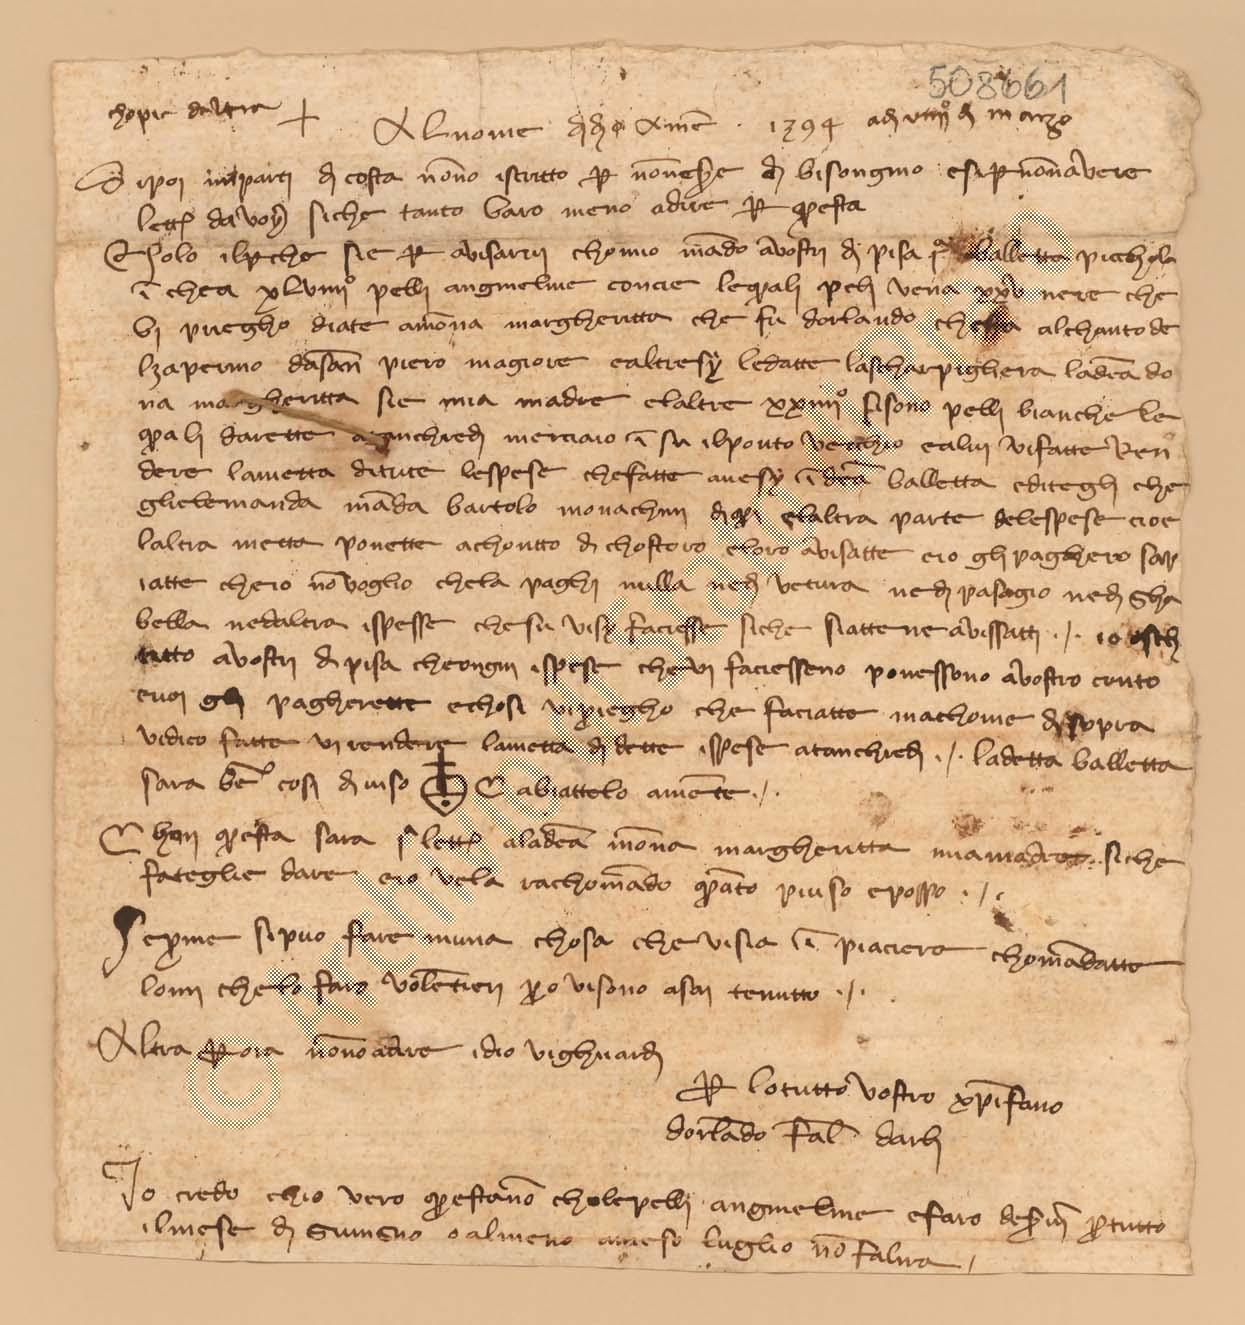 508661
chopie daltra + Al nome di dio Amē · 1394 adi viiii° di marzo
Di poi inparti di costa nōno iscritto per nonesere di bisongnio e si per nōn avere
lettera da voi siche tanto varo meno adire per questa
E solo il perche sie per avisarvi chomio mādo a vostri di pisa jª balletta picchola
ī chea xLviiii° pelli angnielline concie lequali pelli vena xxv nere che
vi priegho diate a mōna margheritta che fu dorlando chesta alchanto de
lzapermo dasan piero magiore e altresy le datte la scharpighera la detta do
na margheritta sie mia madre el altre xxiiii° sisono pelli bianche le
quali darette a tanchredi merciaio ī su il ponto vecchio e a lui vi fatte ren
dere la metta di tute le spese che fatte avesy ī detta balletta e ditegli che
gliele manda māda bartolo monachini di qui el altra parte dele spese cioe
laltra metta ponette achontto di chostoro e loro avisatte e io gli paghero sap
iatte che io nō voglio che la paghi nulla nedi vetura nedi pasagio nedi gha
bella ned altra ispesse che su visy faciesse siche siatte ne avissatti ·/· io o sch
ritto a vostri di pisa che ongni ispese che vi faciesseno ponessono a vostro conto
e voi gli pagherette e chosi vi priegho che faciatte ma chome di sopra
vi dico fatte vi rendere la metta di dette ispese a tanchredi ·/· la detta balletta
sara bē cosi di viso E abiattolo a mēte ·/·
E chon questa sara jª lettera a la detta mōna margheritta mia madre · siche
fateglie dare e io ve la rachomādo quāto piu so e posso ·/·
Se per me si puo fare niuna chosa che vi sia ī piaciere chomādatte
lomi che lo faro volētieri pero vi sono asai tenutto ·/·
Altra per ora nōno adire idio vi ghuardi
Per lo tutto vostro xpōfano
dorlādo Fal darli
Io credo chio vero questanō chole pelli angnielline e faro desservi per tutto
il mese di giungno o al meno a meso luglio nō falira /